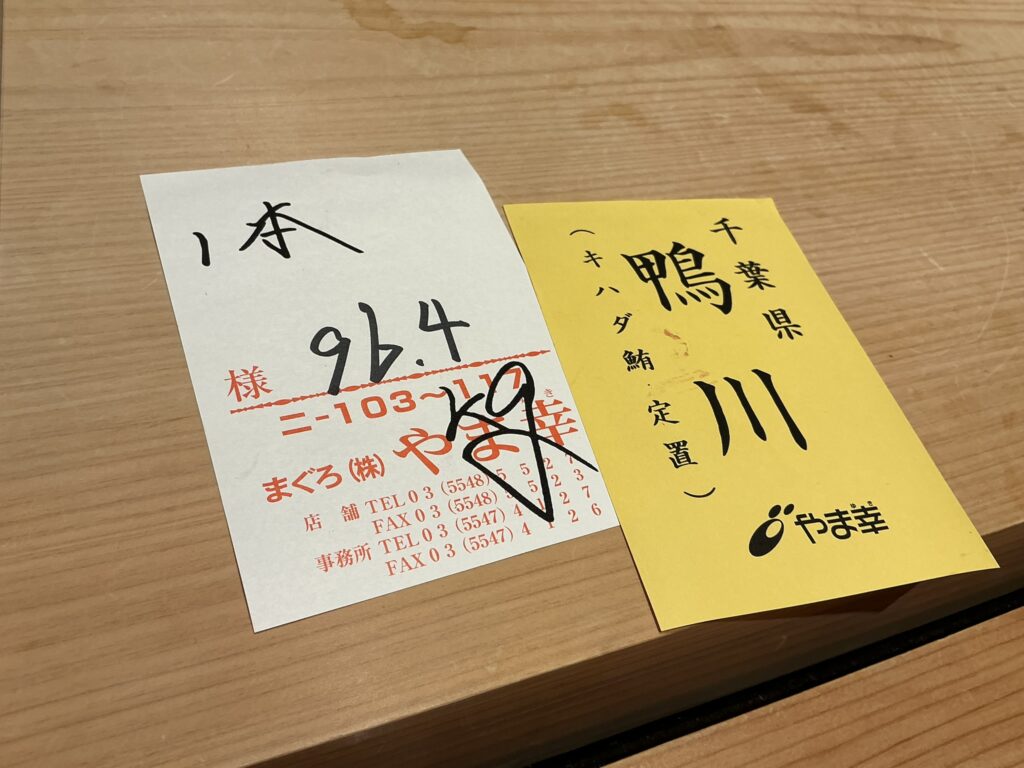 1本
96.4
kg
様
ニ-103〜117
まぐろ(株)やま幸
き
店舗 TEL03(5548)
FAX03(5548)
事務所 TEL03(5547)4127
FAX03(5547)4126
千葉県
鴨川
(キハダ鮪定置)
やま幸